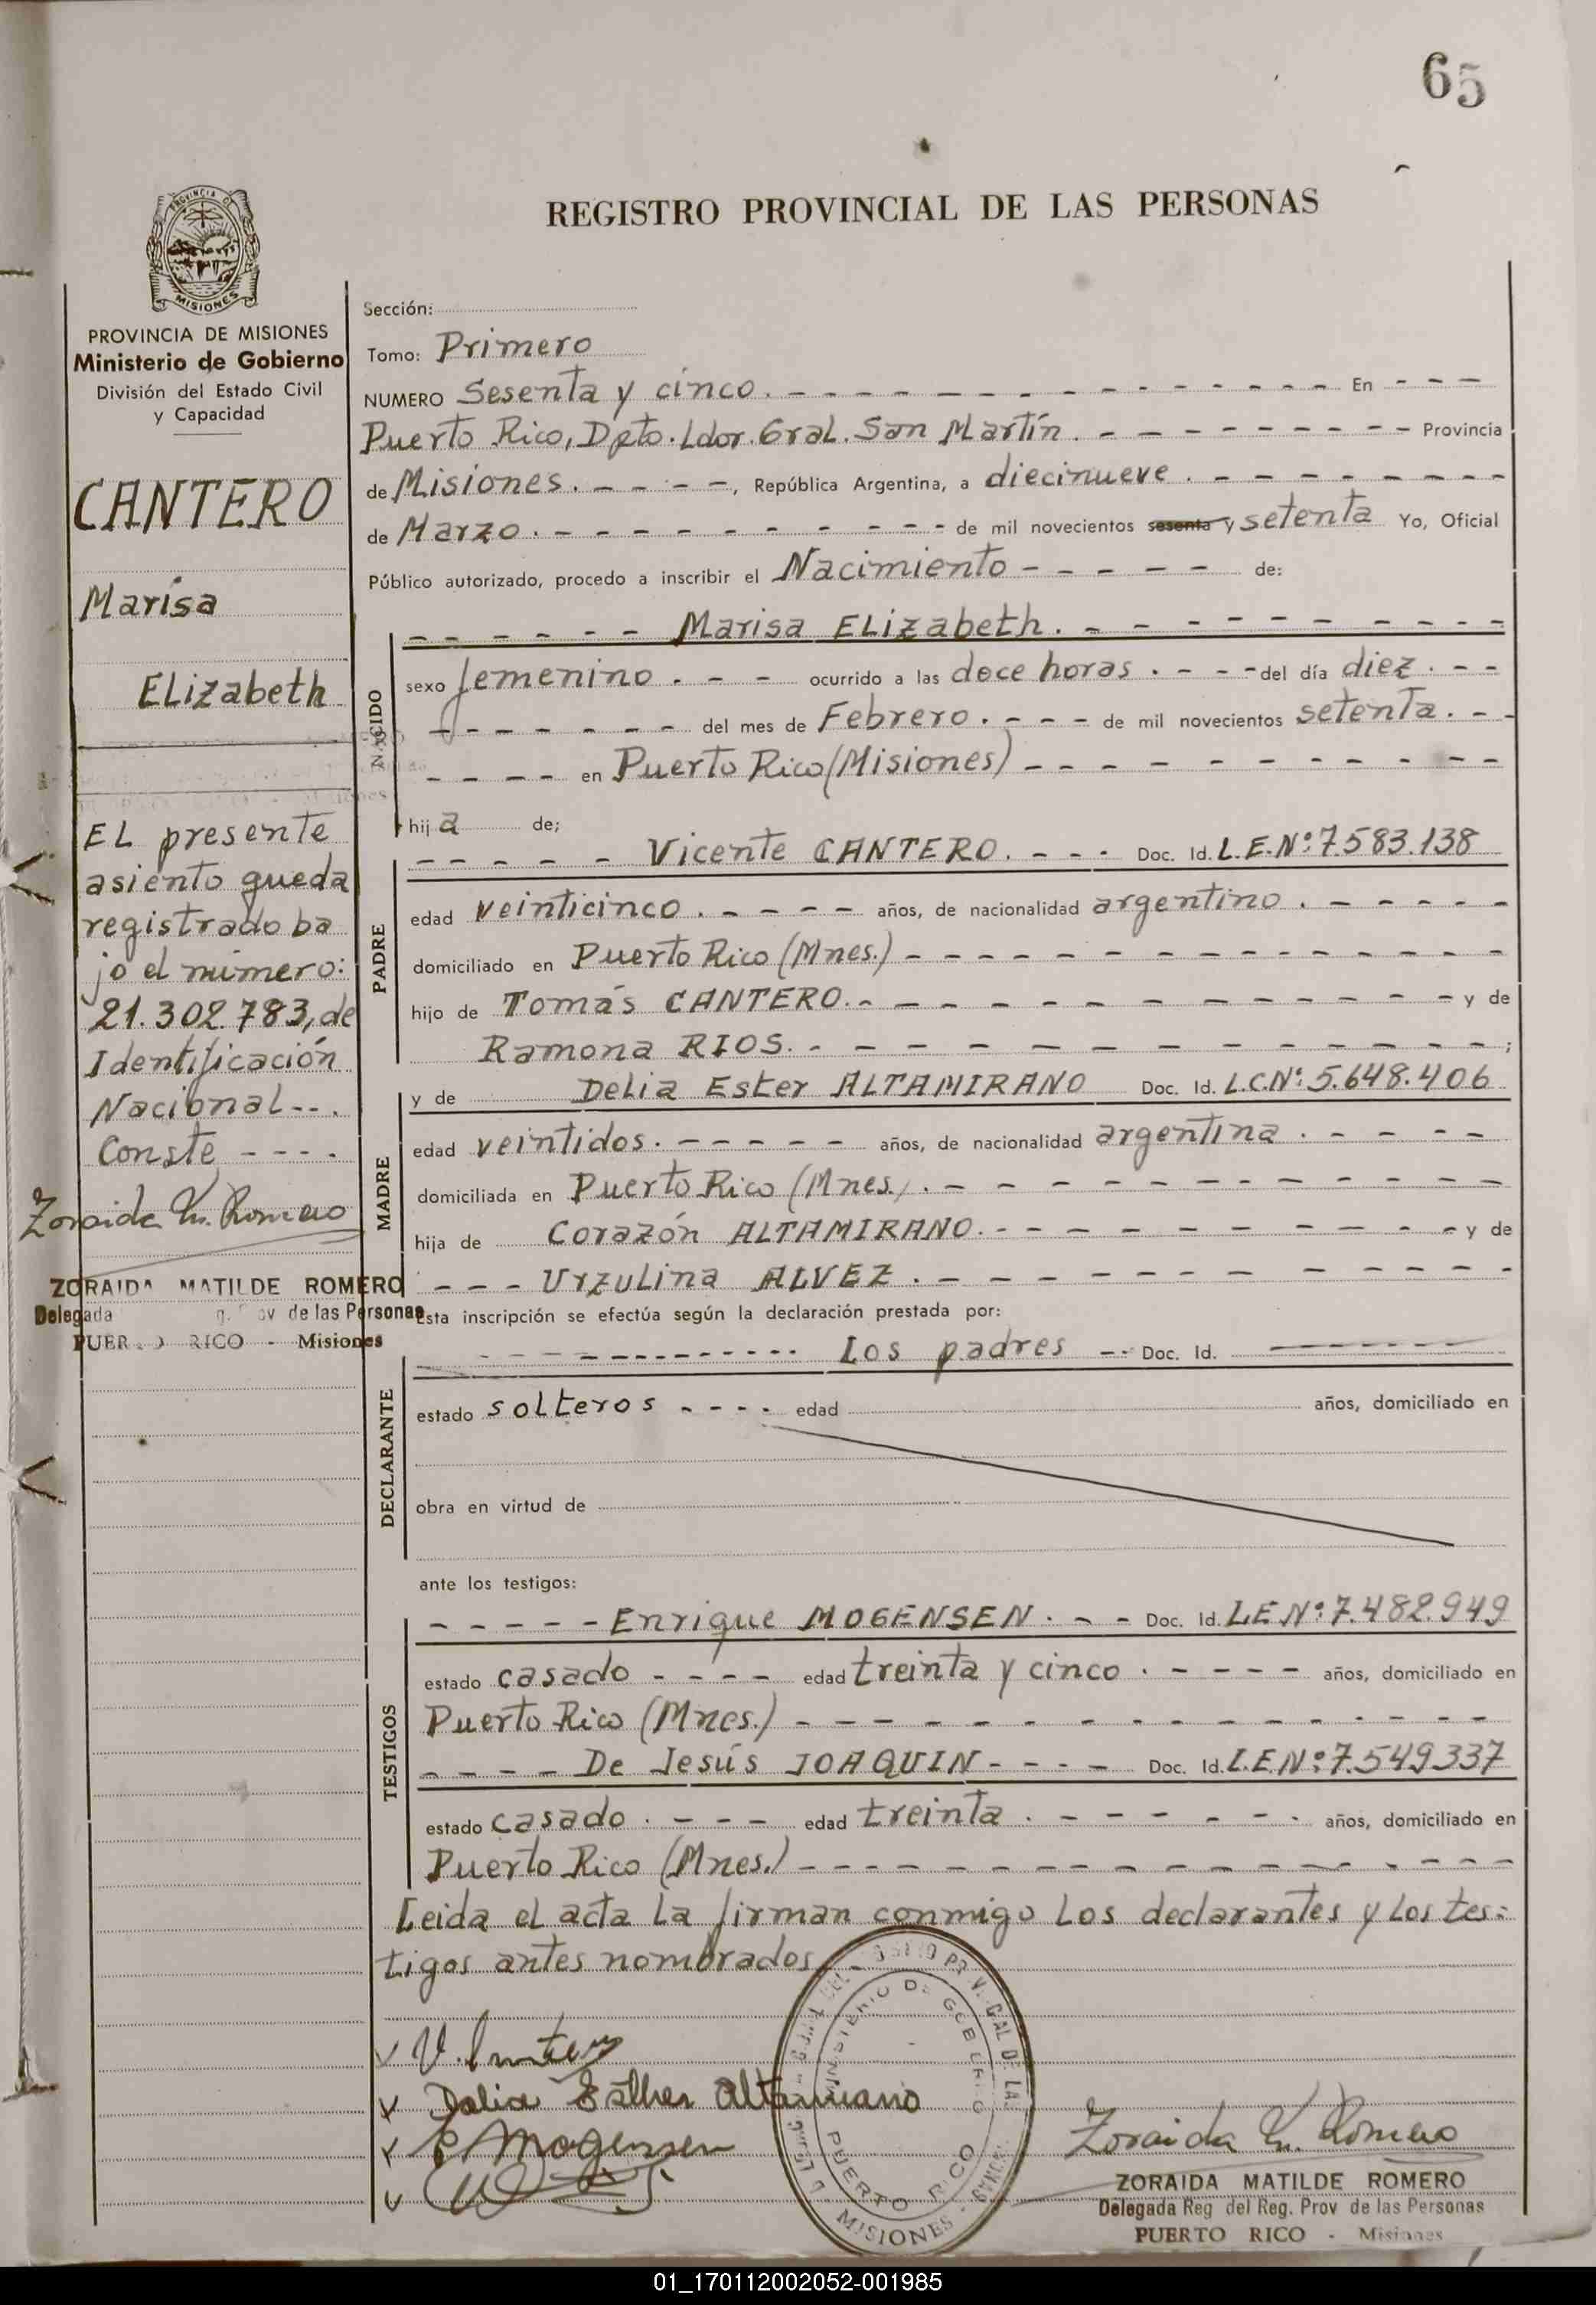 65
REGISTRO PROVINCIAL DE LAS PERSONAS
PROVINCIA DE
MISIONES
PROVINCIA DE MISIONES
Ministerio de Gobierno
División del Estado Civil
y Capacidad
CANTERO
Marisa
Elizabeth
El presente
asiento queda
registrado ba
jo el número:
21.302.783, de
Identificación
Nacional--.
Conste ----
Zoraida M. Romero
ZORAIDA MATILDE ROMERO
Delegada de las Personas
PUERTO RICO - Misiones
Sección:
Tomo: Primero
NUMERO Sesenta y cinco. - - - - - - - - - - - - - En - - -
Puerto Rico, Dpto. Ldor. Gral. San Martín. - - - - - - - - - Provincia
de Misiones. - - - - -, República Argentina, a diecinueve. - - - - - - - -
de Marzo. - - - - - - - - - - de mil novecientos sesenta y setenta Yo, Oficial
Público autorizado, procedo a inscribir el Nacimiento - - - - - de:
NACIDO
- - - - - - Marisa Elizabeth. - - - - - - - - - -
sexo femenino. - - - ocurrido a las doce horas. - - - del día diez. - -
- - - - - - - del mes de Febrero. - - - de mil novecientos setenta. - -
- - - - en Puerto Rico (Misiones) - - - - - - - - - - -
hija de;
PADRE
- - - - - Vicente CANTERO. - - - Doc. Id. L.E.Nº:7.583.138
edad veinticinco. - - - - años, de nacionalidad argentino. - - - - -
domiciliado en Puerto Rico (Mnes.) - - - - - - - - - - - - -
hijo de Tomás CANTERO. - - - - - - - - - - - - y de
Ramona RIOS. - - - - - - - - - - - - - ;
MADRE
y de Delia Ester ALTAMIRANO Doc. Id. L.C.Nº:5.648.406
edad veintidos. - - - - - años, de nacionalidad argentina. - - - -
domiciliada en Puerto Rico (Mnes.). - - - - - - - - - - - -
hija de Corazón ALTAMIRANO. - - - - - - - - - - y de
- - - Urzulina ALVEZ. - - - - - - - - - - -
Esta inscripción se efectúa según la declaración prestada por:
DECLARANTE
- - - - - - - - - - - - Los padres -- Doc. Id. ————
estado solteros - - - - edad años, domiciliado en
obra en virtud de
ante los testigos:
TESTIGOS
- - - - - Enrique MOGENSEN. - - Doc. Id. LE Nº:7.482.949
estado casado - - - - edad treinta y cinco. - - - - años, domiciliado en
Puerto Rico (Mnes.) - - - - - - - - - - - - - - -
- - - - De Jesús JOAQUIN - - - - Doc. Id. L.E.Nº:7.549337
estado casado. - - - edad treinta. - - - - - - años, domiciliado en
Puerto Rico (Mnes.) - - - - - - - - - - - - - - -
Leida el acta la firman conmigo los declarantes y los tes=
tigos antes nombrados.
Delia Esther Altamirano
E Mogensen
MINISTERIO DE GOBIERNO
PUERTO RICO
MISIONES
Zoraida M. Romero
ZORAIDA MATILDE ROMERO
Delegada Reg del Reg. Prov de las Personas
PUERTO RICO - Misiones
01_170112002052-001985